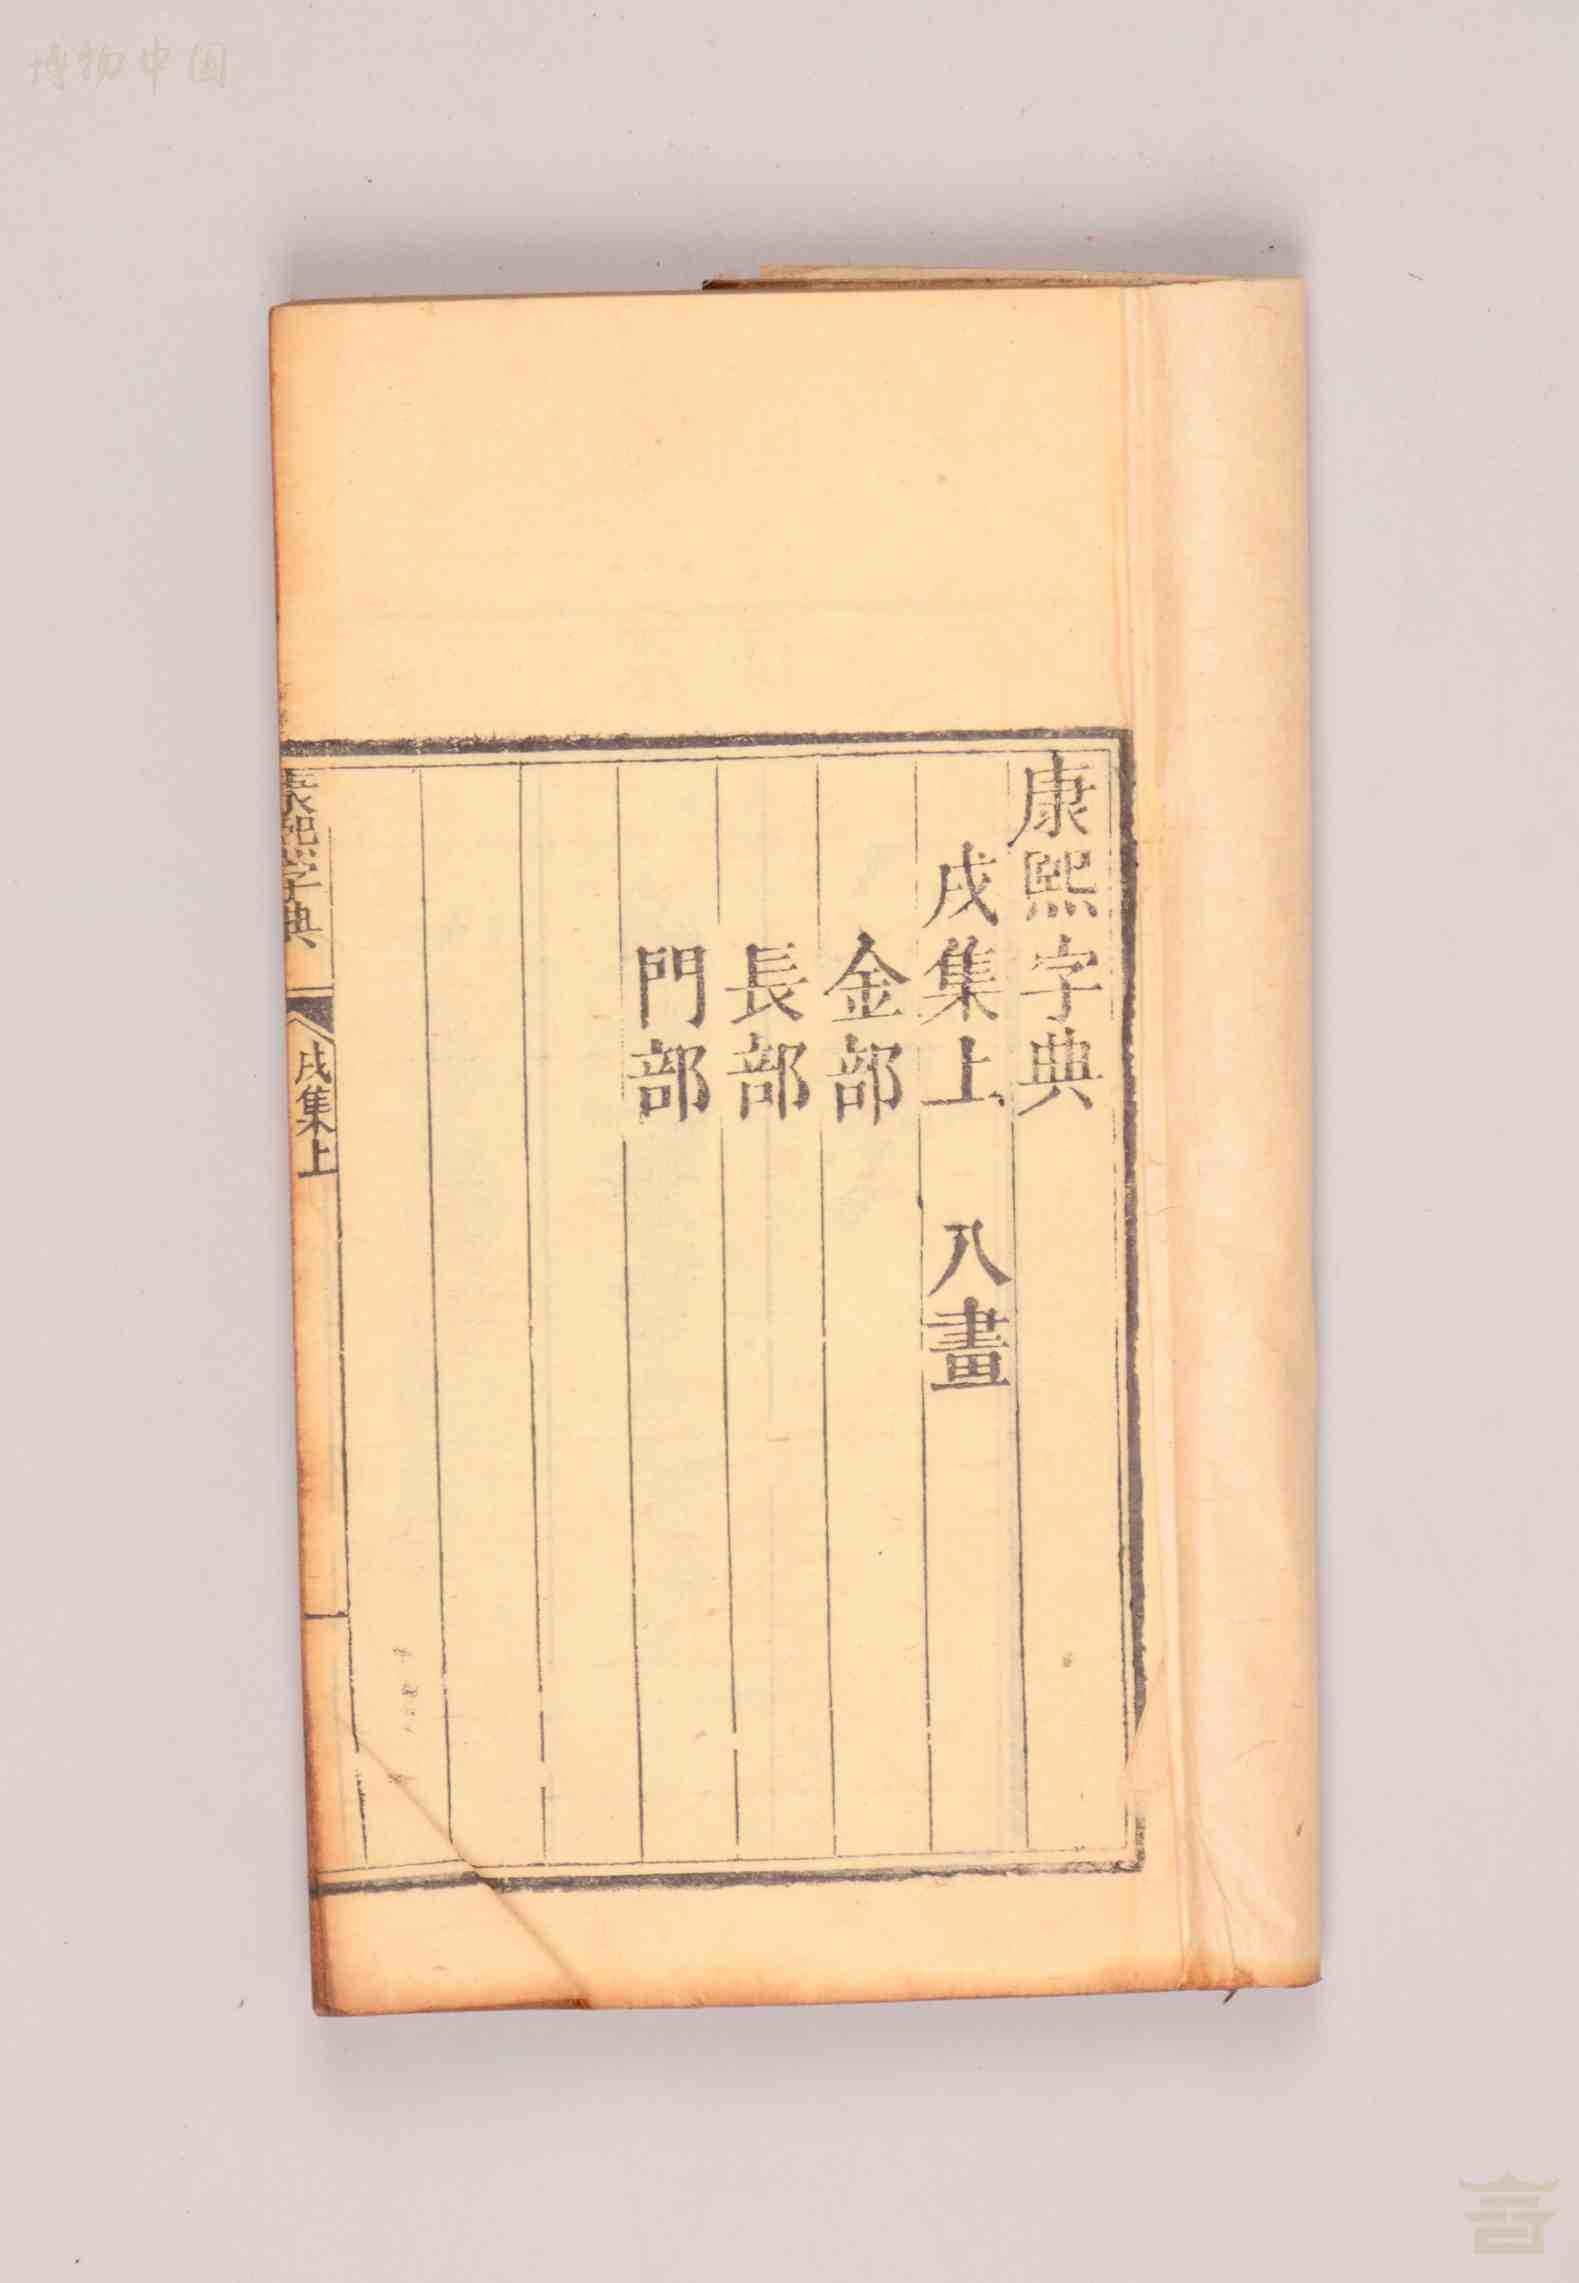 博物中国
康熙字典
戌集上 八畫
金部
長部
門部
康熙字典
戌集上
一